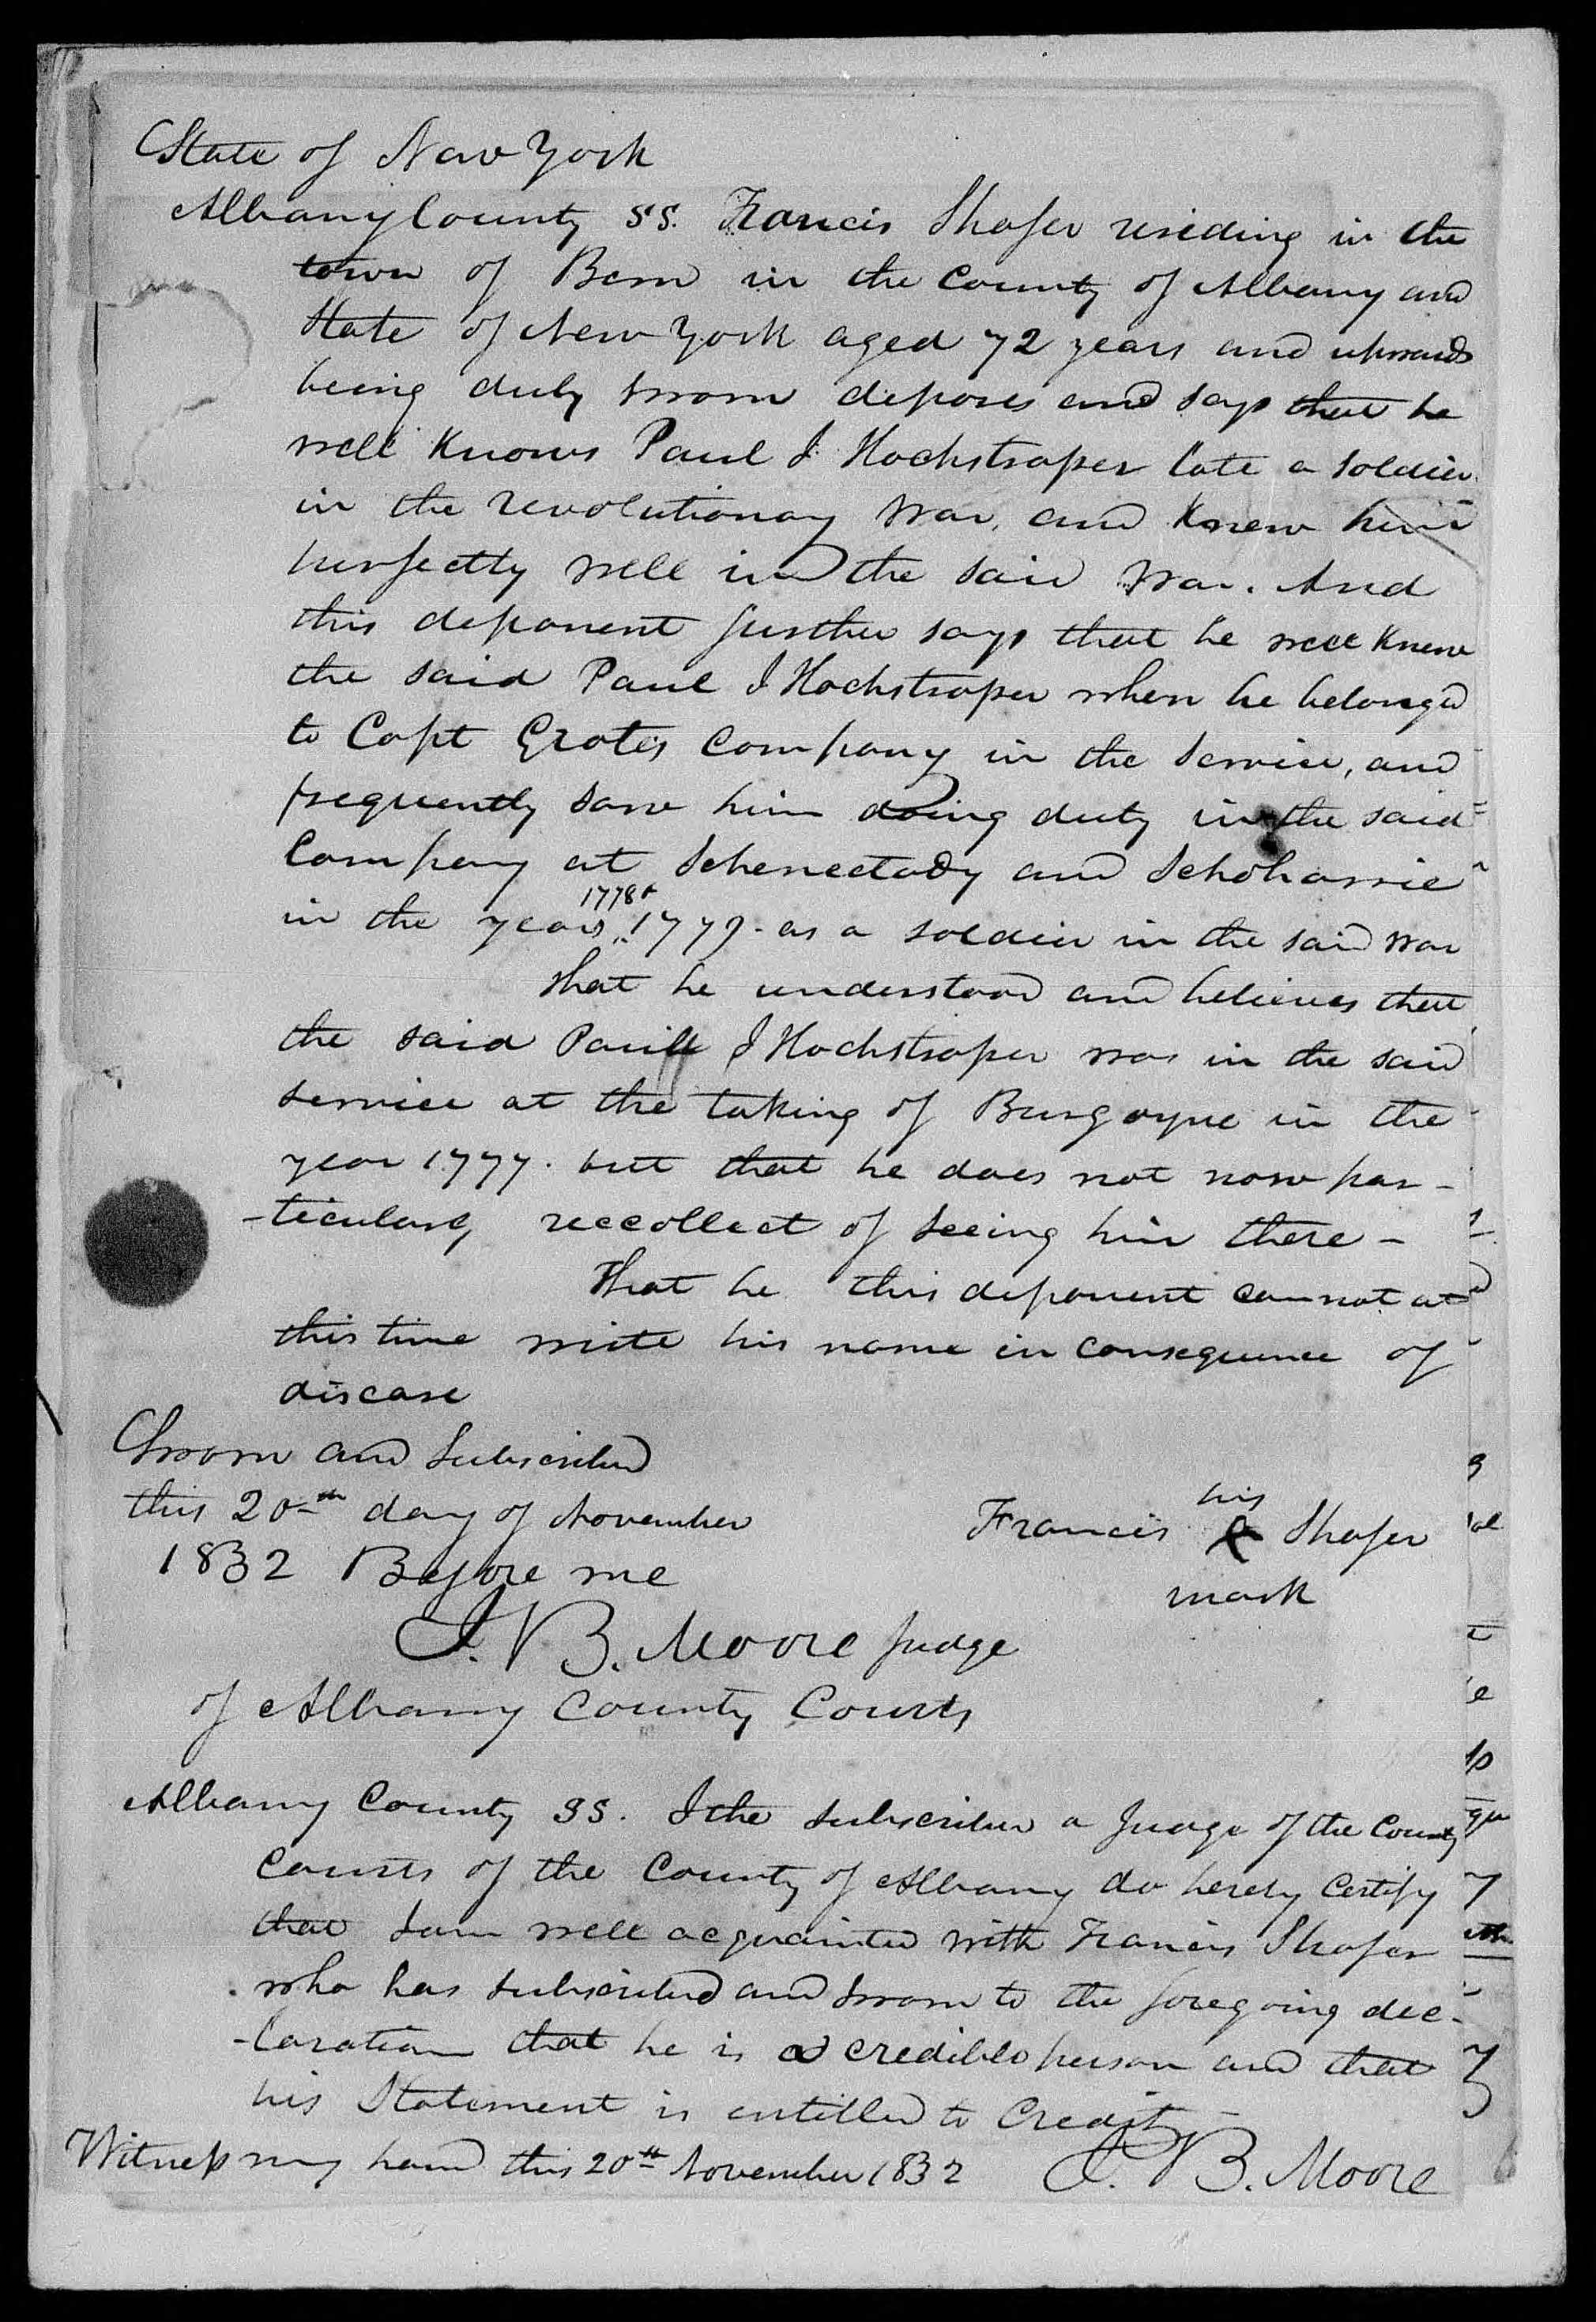 State of New York
Albany County SS. Francis Shafer residing in the
town of Bern in the County of Albany and
State of New York aged 72 years and upwards
being duly sworn deposes and says that he
well knows Paul J Hochstrasser late a soldier
in the revolutionary war, and knew him
perfectly well in the said war. And
this deponent further says that he well knew
the said Paul J Hochstrasser when he belonged
to Capt Grotes company in the service, and
frequently saw him doing duty in the said
Company at Schenectady and Schoharrie
1778 &
in the years 1779. as a soldier in the said war
that he understood and believes that
the said Paul J Hochstrasser was in the said
service at the taking of Burgoyne in the
year 1777. but that he does not now par-
-ticularly reccollect of seeing him there -
That he this deponent cannot at
this time write his name in consequence of
disease
Sworn and Subscribed
this 20th day of November
1832 Before me
his
Francis X Shafer
mark
J. B. Moore Judge
of Albany County Courts
Albany County SS. I the subscriber a Judge of the County
Courts of the County of Albany do hereby Certify
that I am well acquainted with Francis Shafer
who has subscribed and sworn to the foregoing dec-
-laration that he is a credible person and that
his Statement is entitled to Credit
Witness my hand this 20th November 1832 J. B. Moore